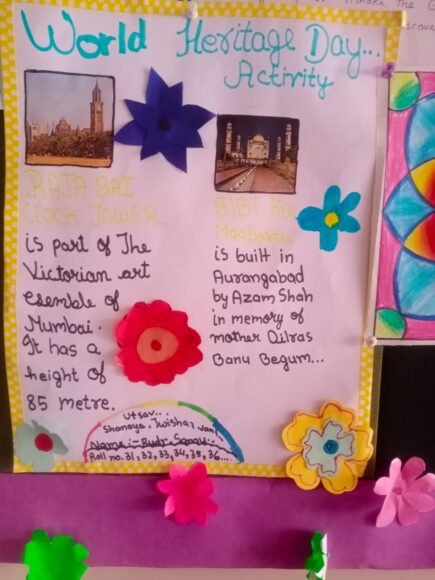 World Heritage Day...
Activity
RAJA BAI
CLOCK TOWER..
is part of The
Victorian art
esemble of
Mumbai.
It has a
height of
85 metre.
BIBI Ka
Maqbara..
is built in
Aurangabad
by Azam Shah
in memory of
mother Dilras
Banu Begum...
Utsav...
Shanaya,
Name:- Rudr,
Roll no. 31, 32, 33, 34, 35, 36...